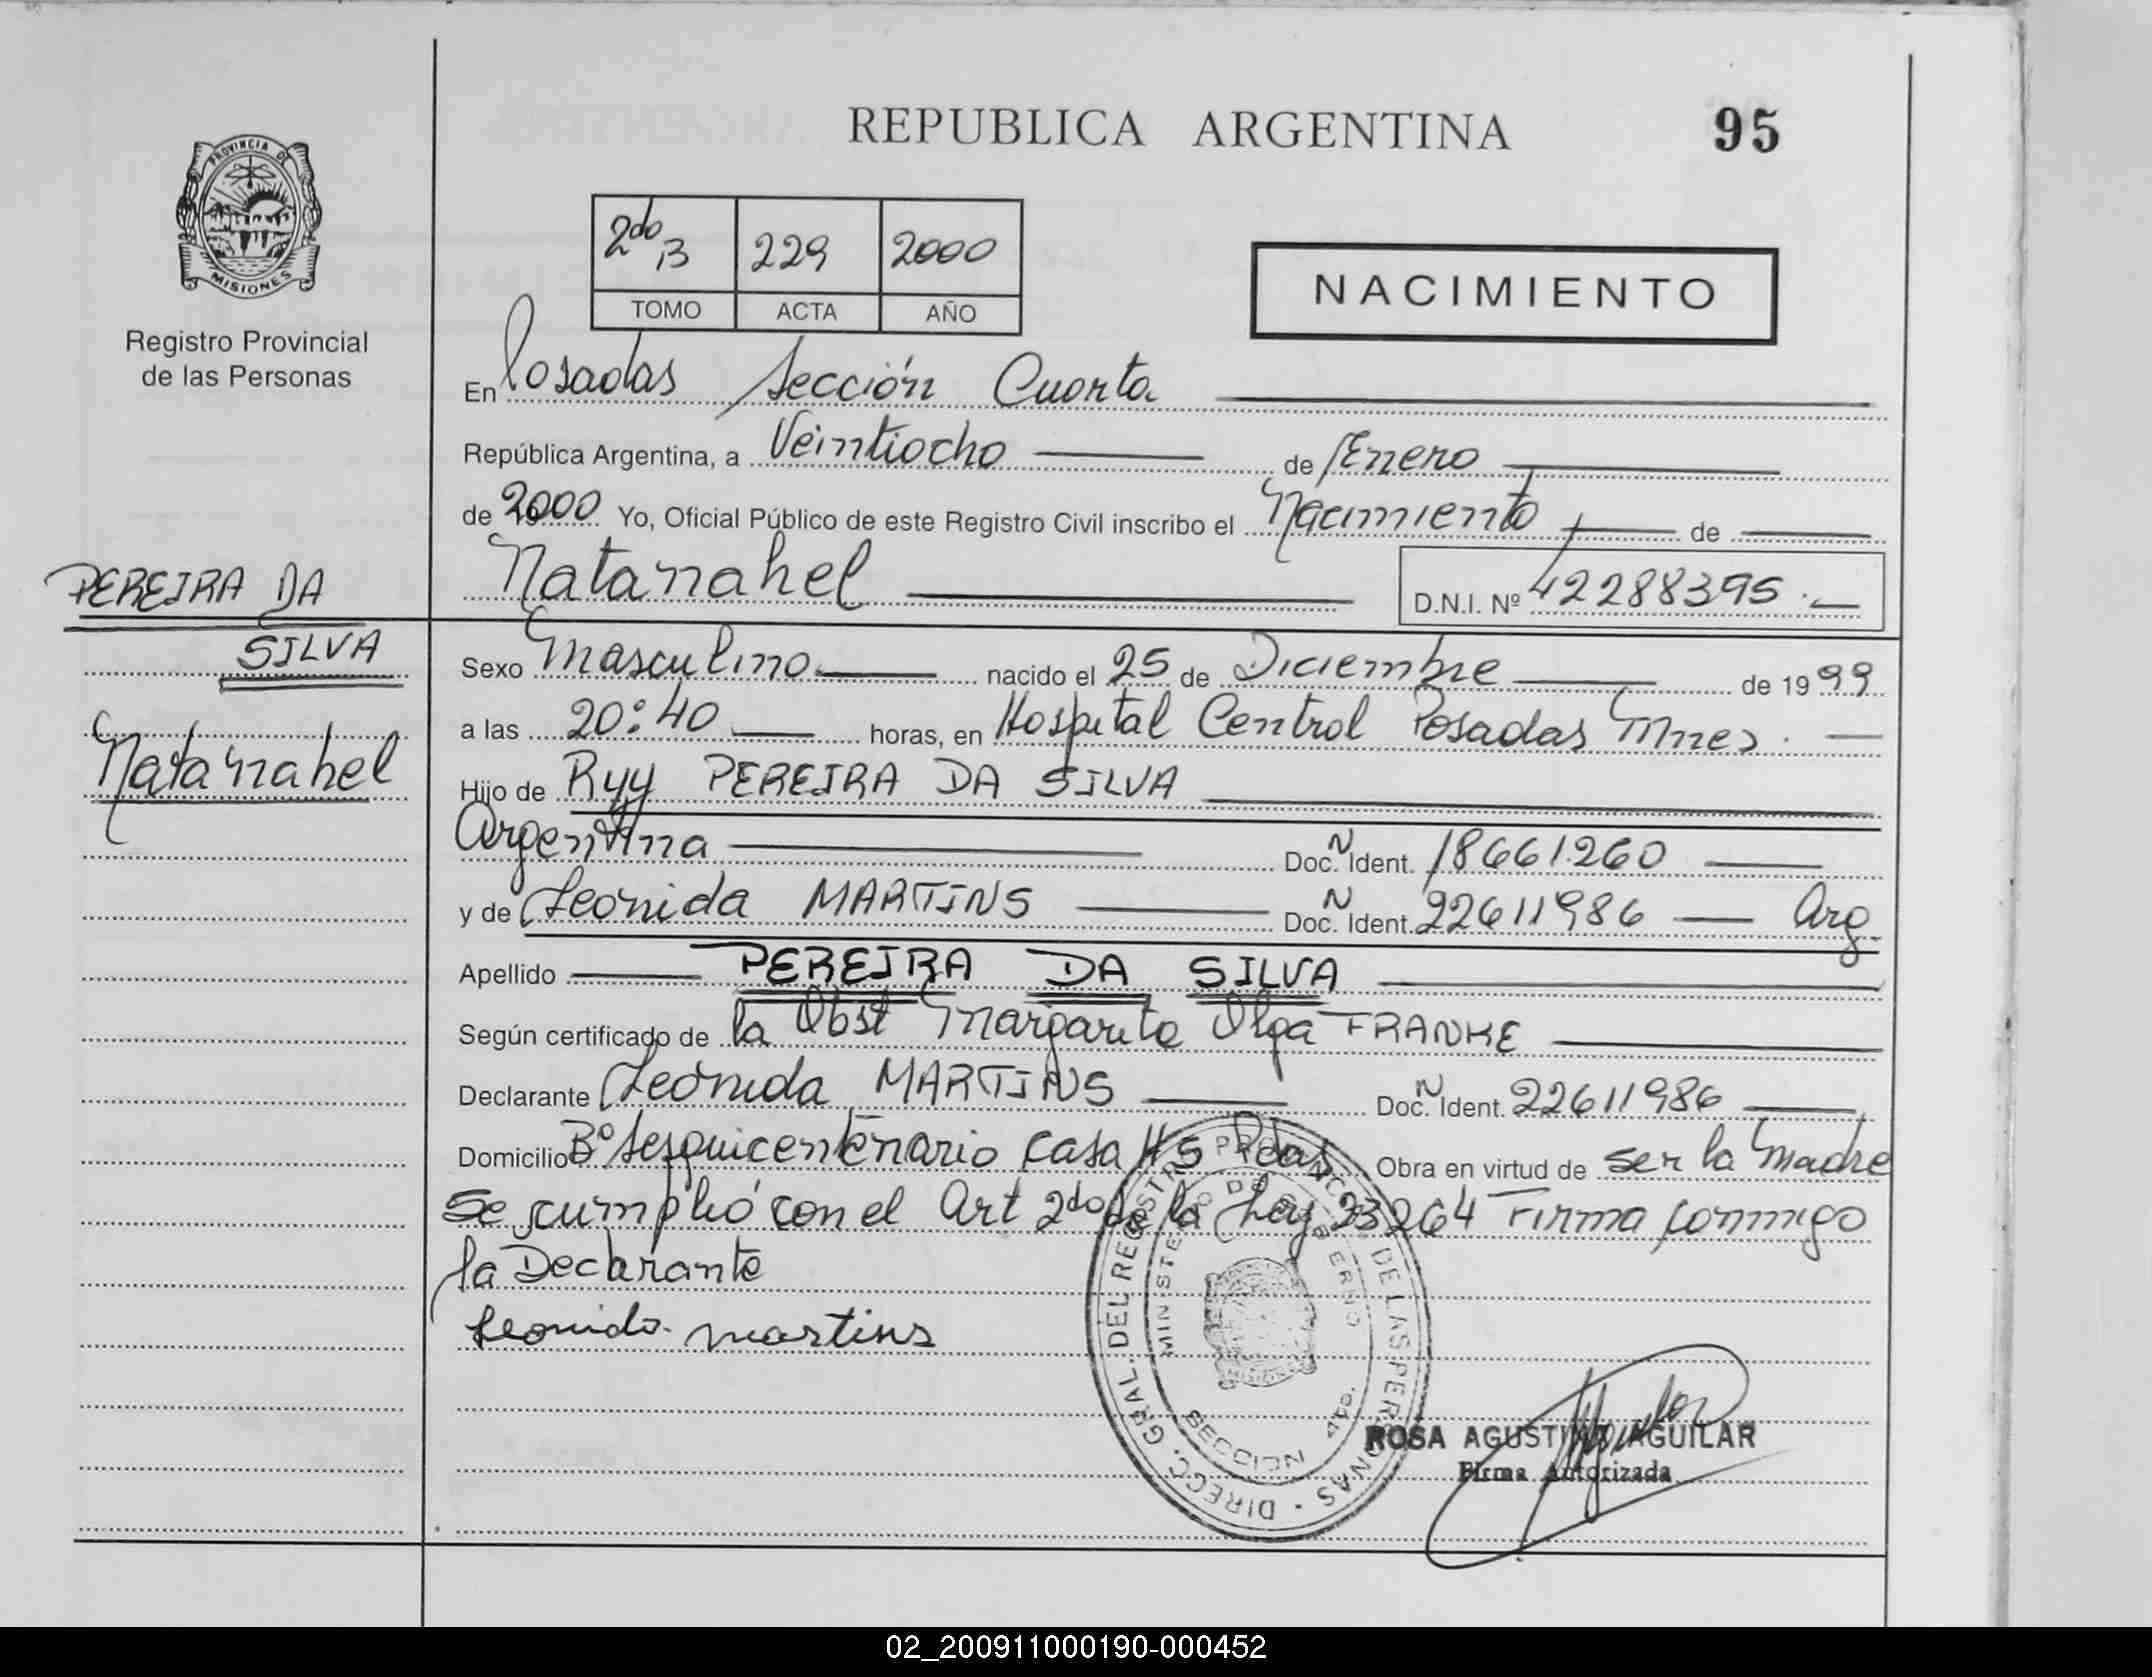 REPUBLICA ARGENTINA
95
PROVINCIA DE
MISIONES
Registro Provincial
de las Personas
2do B 229 2000
TOMO ACTA AÑO
NACIMIENTO
En Posadas Sección Cuarta
República Argentina, a Veintiocho de Enero
de 2000 Yo, Oficial Público de este Registro Civil inscribo el Nacimiento de
Natanahel D.N.I. Nº 42288395.
PEREIRA DA
SILVA
Natanahel
Sexo Masculino nacido el 25 de Diciembre de 1999
a las 20:40 horas, en Hospital Central Posadas Mnes.
Hijo de Ryy PEREIRA DA SILVA
Argentina Doc. N Ident. 18661260
y de Leonida MARTINS Doc. N Ident. 22611986 Arg.
Apellido PEREIRA DA SILVA
Según certificado de la Obst Margarita Olga FRANKE
Declarante Leonida MARTINS Doc. N Ident. 22611986
Domicilio Bº Sesquicentenario Casa Pdas Obra en virtud de ser la Madre
Se cumplió con el Art 2do de la Ley 23264 Firma conmigo
la Declarante
Leonida martins
DIRECC. GRAL. DEL REGISTRO PROVINCIAL DE LAS PERSONAS
MINISTERIO DE GOBIERNO
SECCION 4ta.
ROSA AGUSTINA AGUILAR
Firma Autorizada
02_200911000190-000452